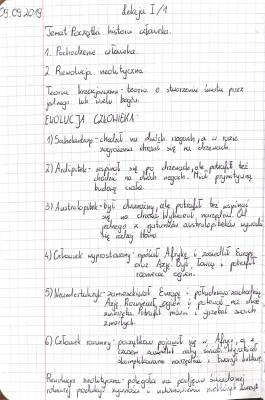 09.09.2019
Lekcja I/1
Temat: Początki historii człowieka.
1. Pochodzenie człowieka.
2. Rewolucja neolityczna
Teoria kreacjonizmu - teoria o stworzeniu świata przez
jednego lub wielu bogów.
EWOLUCJA CZŁOWIEKA
1) - chodził na dwóch nogach, a w razie
zagrożenia chronił się na drzewach.
2) Ardipitek - wspinał się po drzewach, ale potrafił też
chodzić na dwóch nogach. Miał prymitywną
budowę ciała.
3) Australopitek - był dwunożny, ale potrafił też wspinać
się na drzewa. narzędzi. Od
jednego z gatunków australopiteków wywodzi
się rodzaj Homo.
4) Człowiek wyprostowany - opuścił Afrykę i zasiedlił Europę
oraz Azję. Był łowcą i potrafił
rozniecać ogień.
5) Neandertalczyk - zamieszkiwał Europę i południowo-zachodnią
Azję. Rozniecał ogień i polował na duże
zwierzęta. Potrafił mówić i grzebał swoich
zmarłych.
6) Człowiek rozumny - początkowo pojawił się w Afryce, a z
czasem zasiedlił cały świat.
skomplikowane narzędzia i tworzył kulturę.
Rewolucja neolityczna - polegała na podjęciu świadomej
celowej produkcji żywności i udomowieniu niektórych zwierząt